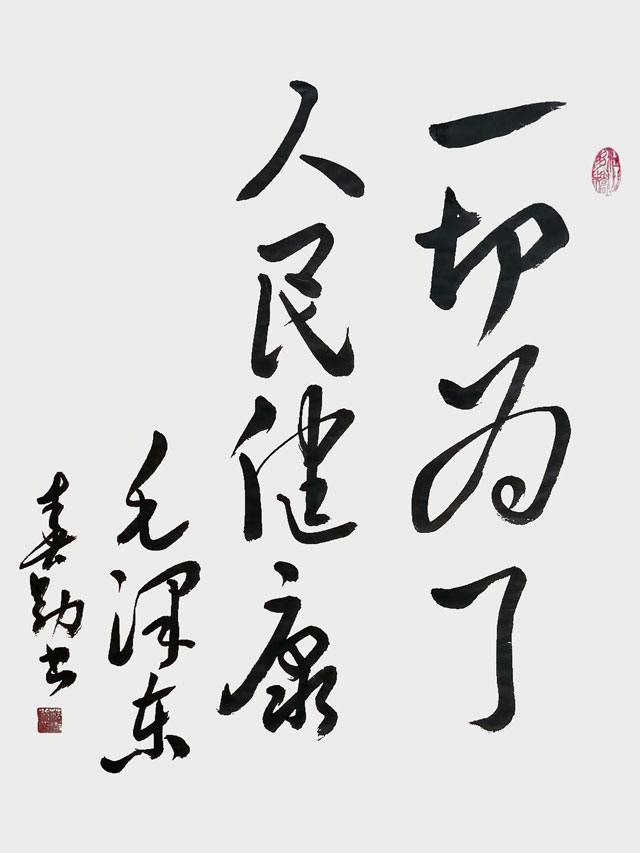 一切为了
人民健康
毛泽东
书